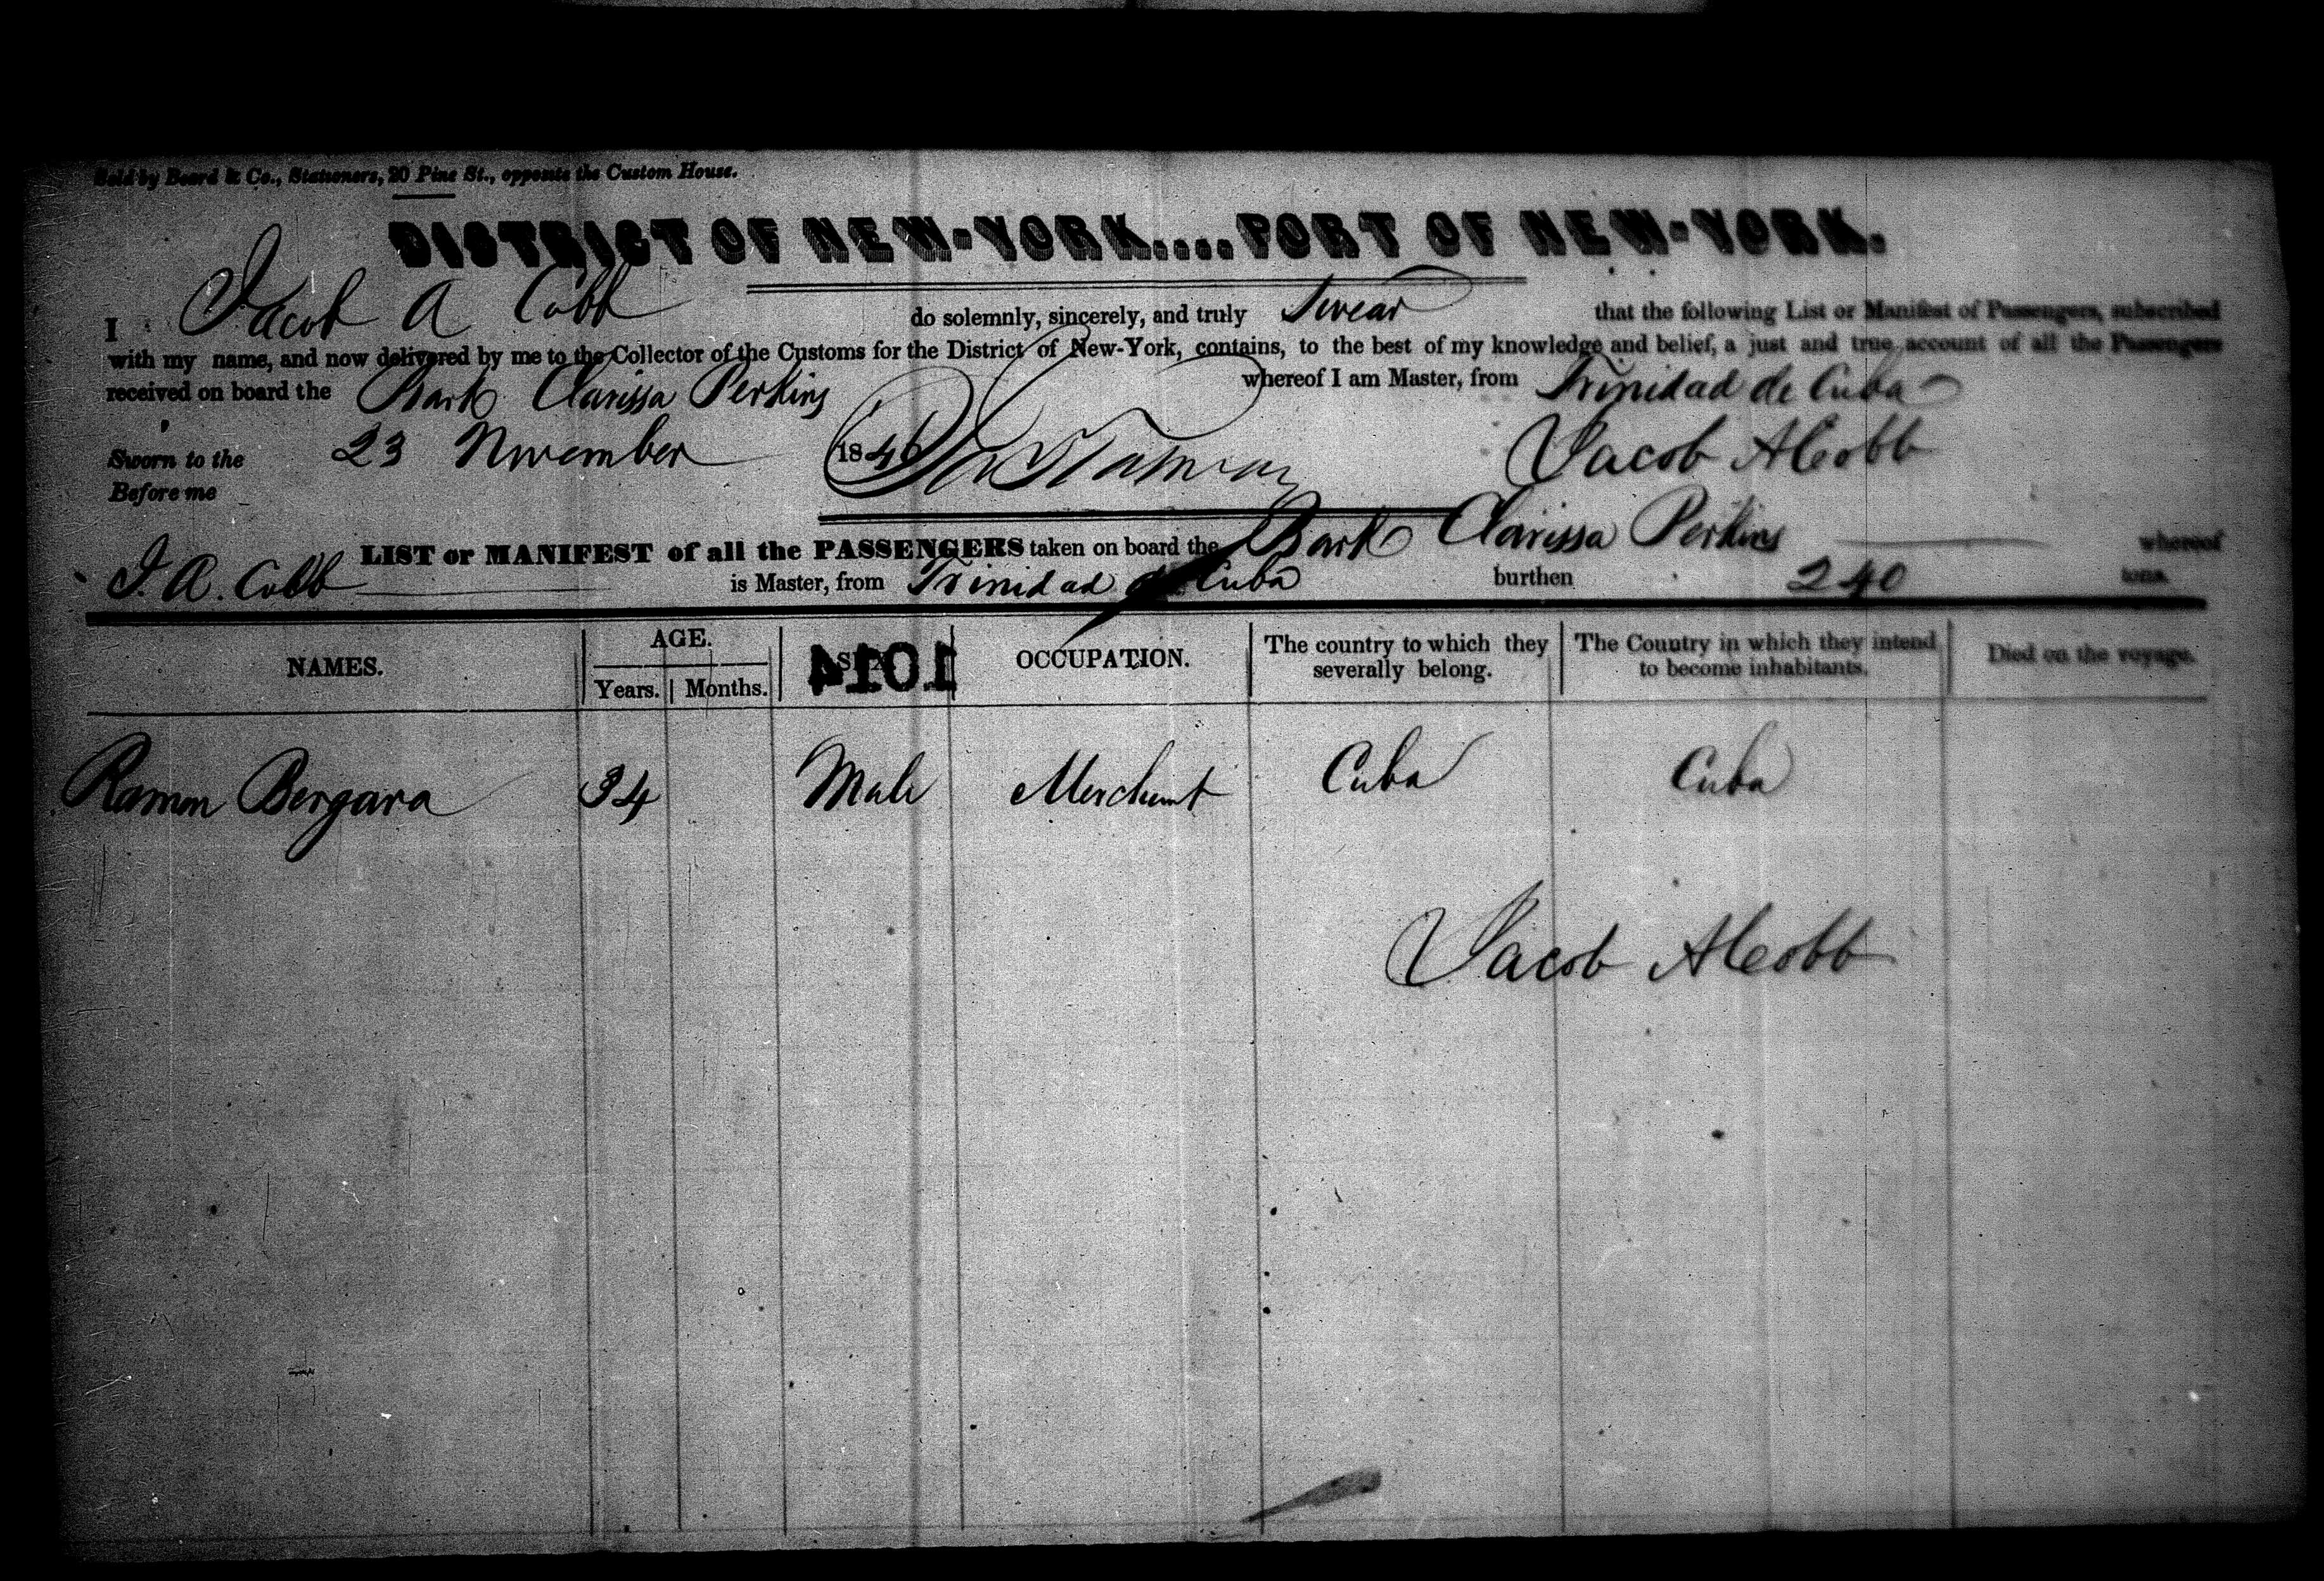 Sold by Board & Co., Stationers, 20 Pine St., opposite the Custom House.
DISTRICT OF NEW-YORK....PORT OF NEW-YORK.
I Jacob A Cobb do solemnly, sincerely, and truly Swear that the following List or Manifest of Passengers, subscribed
with my name, and now delivered by me to the Collector of the Customs for the District of New-York, contains, to the best of my knowledge and belief, a just and true account of all the Passengers
received on board the Bark Clarissa Perkins whereof I am Master, from Trinidad de Cuba
Sworn to the 23 November 1846 Jacob A Cobb
Before me
LIST or MANIFEST of all the PASSENGERS taken on board the Bark Clarissa Perkins whereof
J. A. Cobb is Master, from Trinidad de Cuba burthen 240 tons.
NAMES. AGE. Years. Months. SEX 1014 OCCUPATION. The country to which they severally belong. The Country in which they intend to become inhabitants. Died on the voyage.
Ramon Bergara 34 Male Merchant Cuba Cuba
Jacob A Cobb